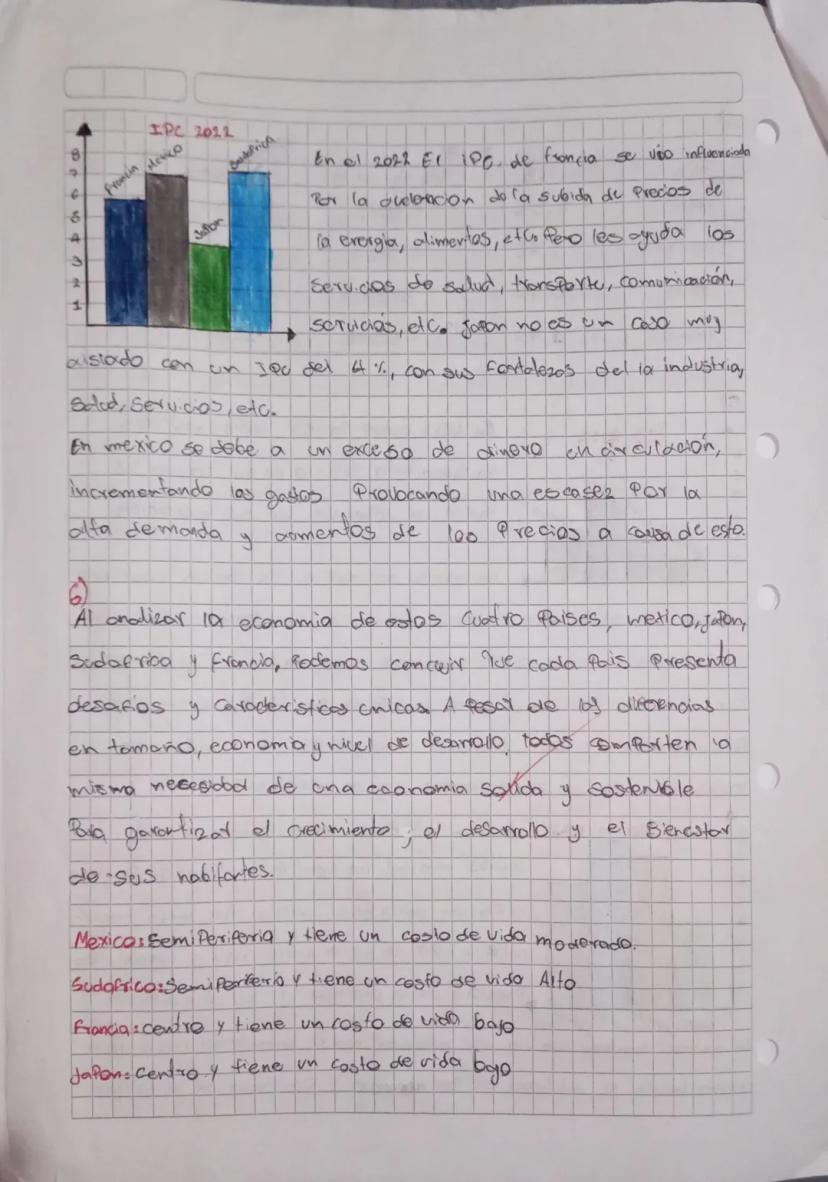 IPC 2022
8
7
6
5
4
3
2
1
Francia
Mexico
Japon
Sudafrica
En el 2022 El IPC. de francia se vio influenciado
Por la aceleracion de la subida de Precios de
la energia, alimentos, etc. Pero les ayuda los
Servicios de salud, transporte, comunicación,
servicias, etc. Japon no es un caso muy
aislado con un IPC del 4%, con sus fortalezas del la industria,
Salud, Servicios, etc.
En mexico se debe a un exceso de dinero en circulación,
incrementando las gastos Provocando una escasez Por la
alta demanda y aumentos de los Precios a causa de esto.
6)
Al analizar la economia de estos cuatro Paises, mexico, Japon,
Sudafrica y francia, Podemos concluir que cada Pais Presenta
desafios y caracteristicas unicas. A Pesar de las diferencias
en tamaño, economia y nivel de desarrollo, todos comparten la
misma necesidad de una economia solida y sostenible
Para garantizar el crecimiento, el desarrollo y el Bienestar
de sus habitantes.
Mexico: SemiPeriferia y tiene un costo de vida moderado.
Sudafrica: Semiperiferia y tiene un costo de vida Alto
Francia: centro y tiene un costo de vida bajo
Japon: Centro y tiene un costo de vida bajo